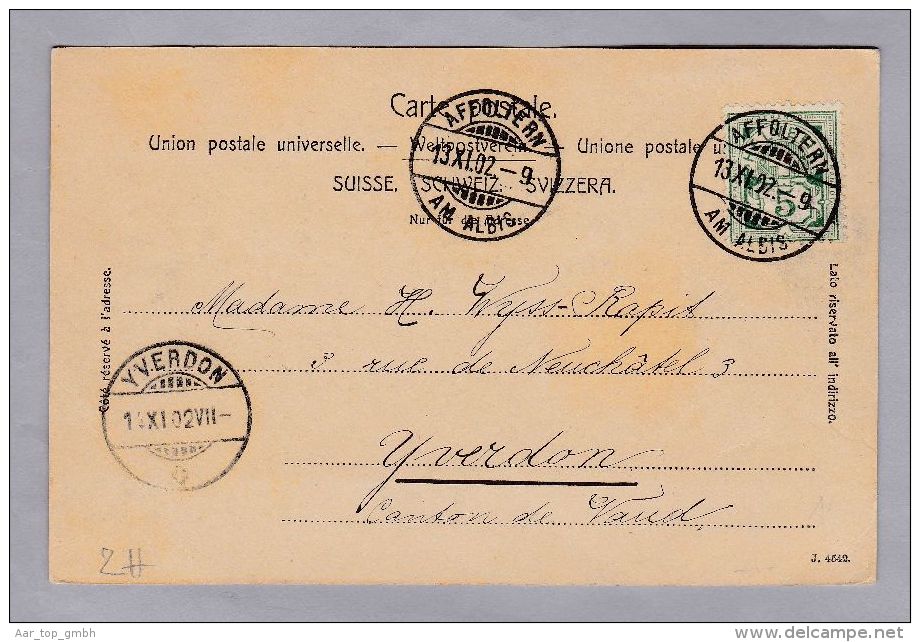 Carte postale.
Union postale universelle. — Weltpostverein — Unione postale
SUISSE. SCHWEIZ. SVIZZERA.
Nur für die Adresse
AFFOLTERN
13.XI.02.–9
AM ALBIS
AFFOLTERN
13.XI.02.–9
AM ALBIS
5
Côté réservé à l'adresse.
Lato riservato all' indirizzo.
Madame H. Wyss-Rapit
3 rue de Neuchâtel 3
Yverdon
Canton de Vaud,
YVERDON
XI.02VII–
ZH
J. 4542.
Aar_top_gmbh
www.delcampe.net